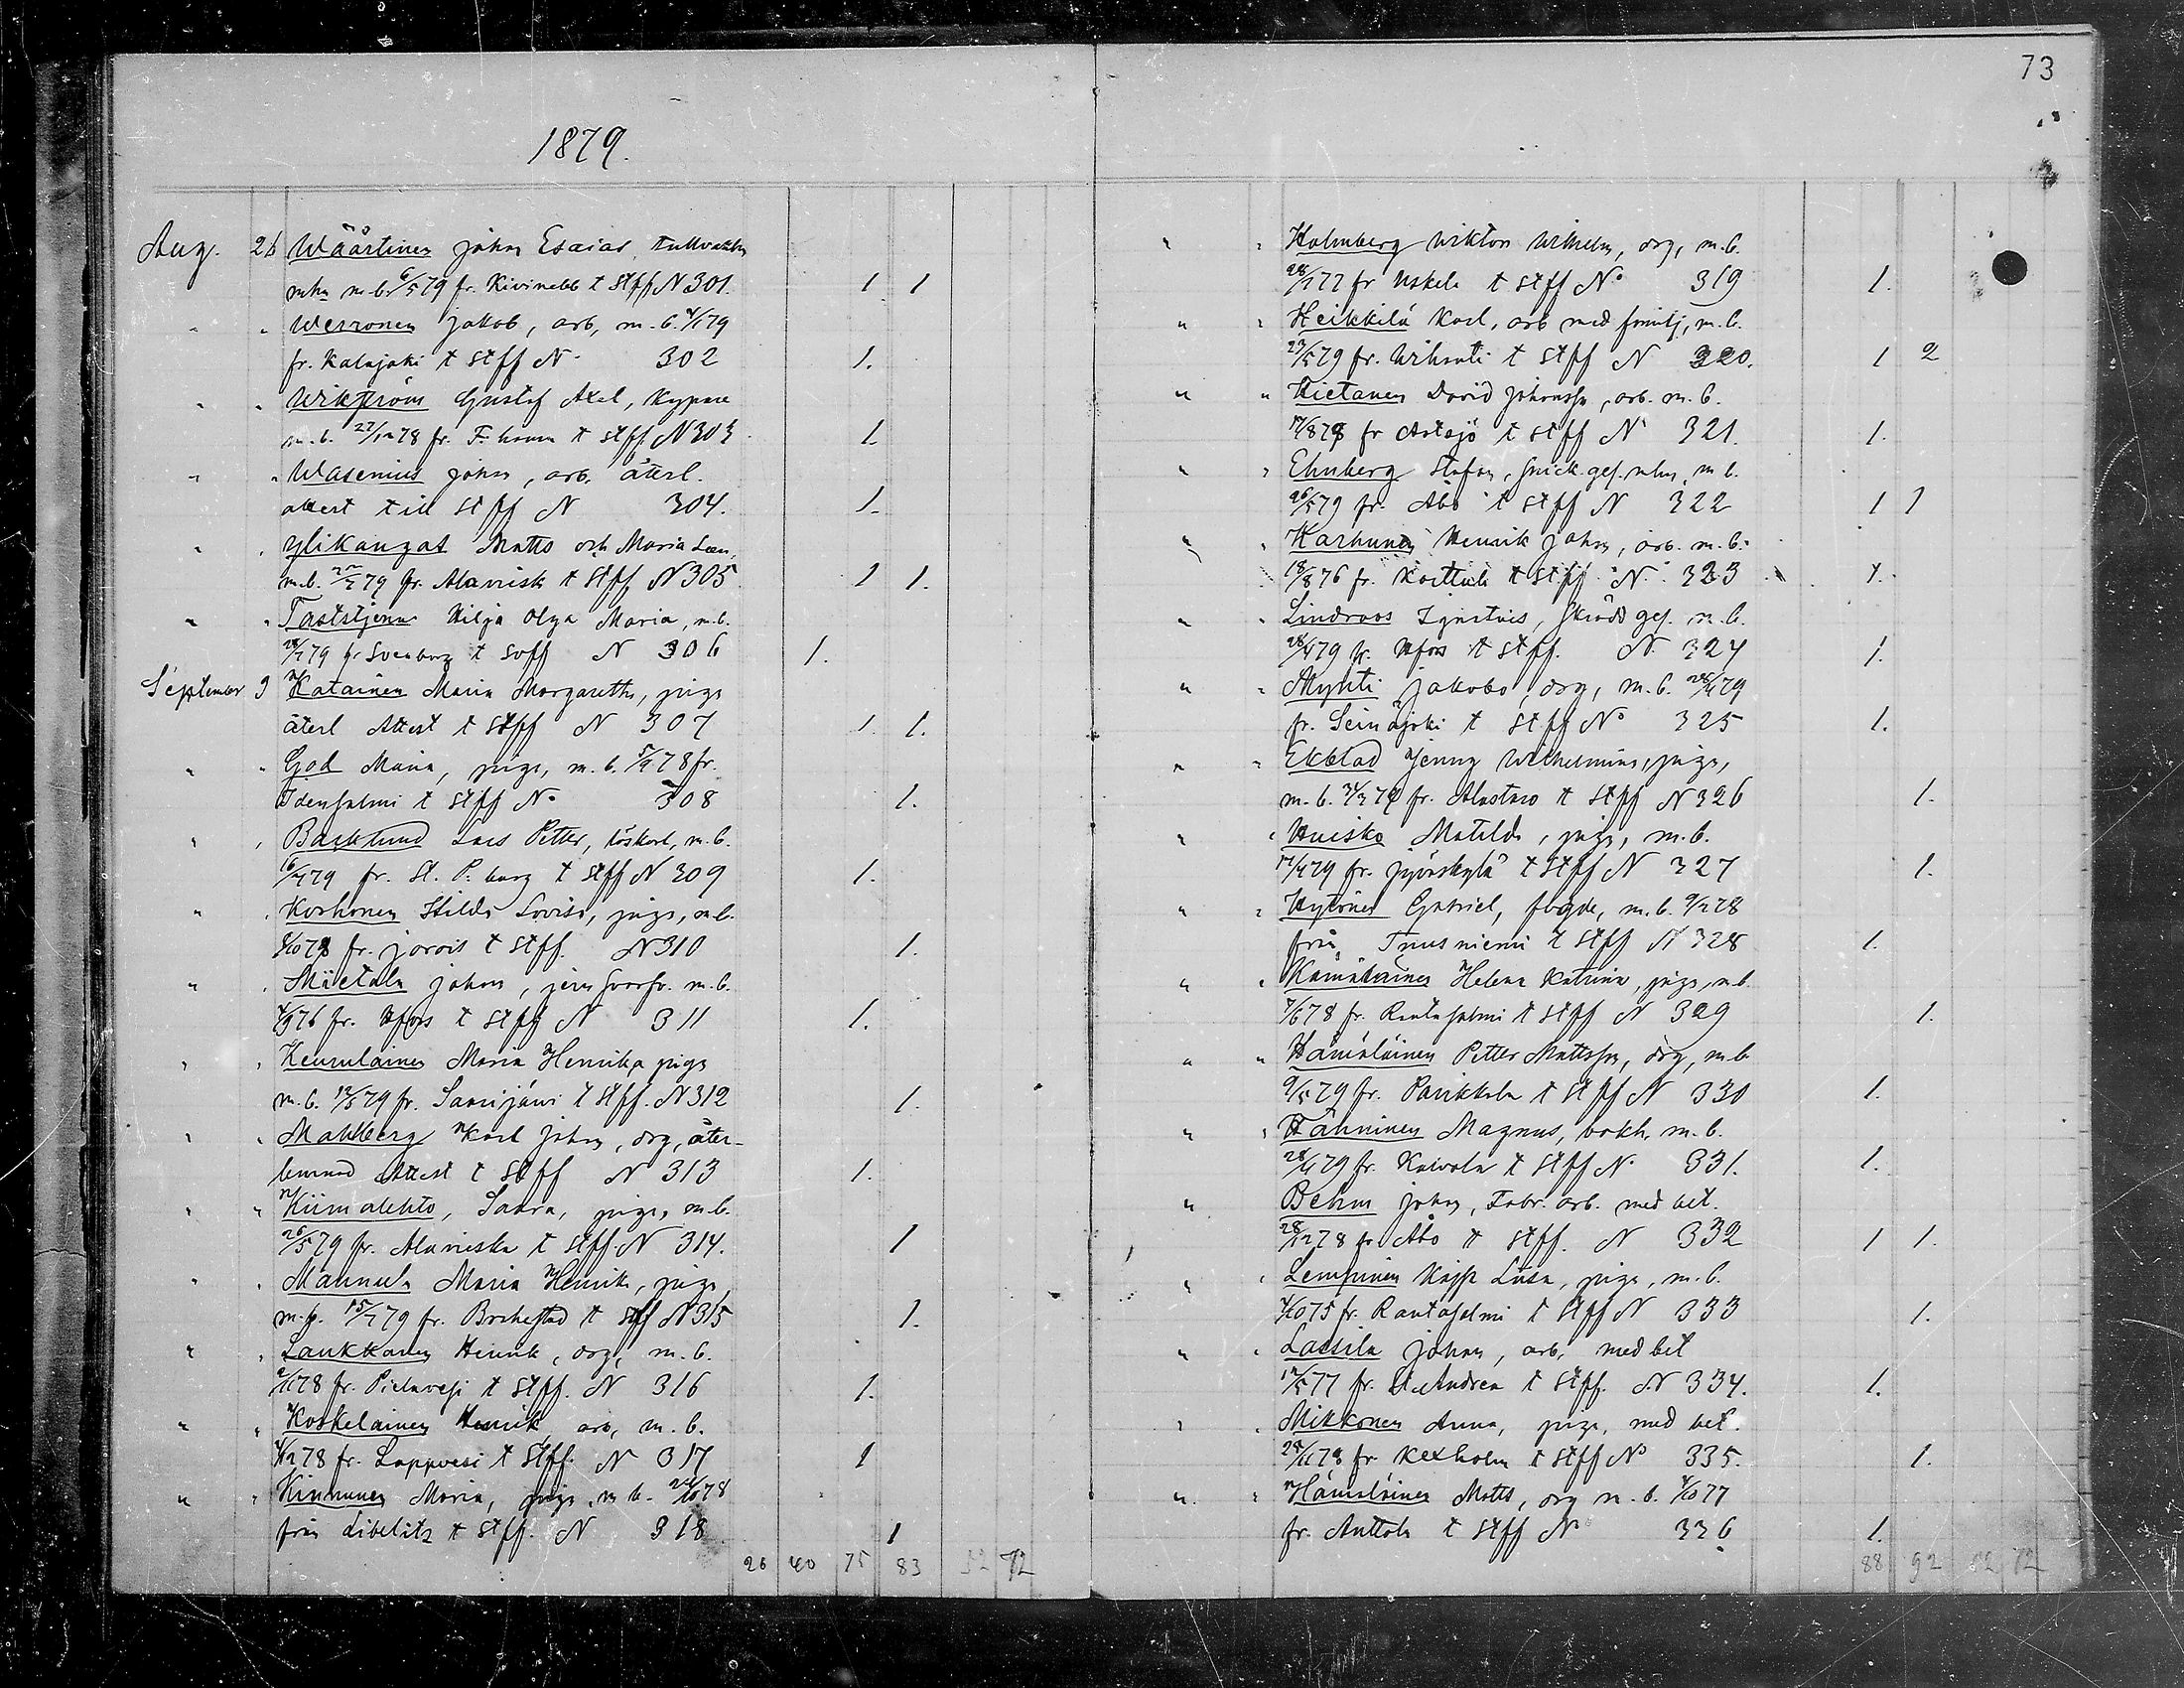 73
1879.
Aug. 26 Wäärtinen Johan Esaias,
m.b. 6/5 79 fr. Kivinebb t Stff N 301. 1 1
" " Werronen Jakob, arb, m.b. 4/1 79
fr. Kalajoki t Stff N 302 1.
" " Wikström Gustaf Axel, Kypare
m.b. 27/12 78 fr. F:hamn t Stff N 303 1.
" " Wasenius Johan, arb, återl.
attest till Stff N 304. 1.
" " Ylikangas Matts och Maria
m.b. 79 fr. Alavieska t Stff N 305 1 1.
" " Taststjerna Hilja Olga Maria, m.b.
28/7 79 fr Sveaborg t Svff N 306 1.
September 3 Katainen Maria Margaretha, piga
återl Attest t Stff N 307 1. 1.
" " God Maria, piga, m.b. 5/9 78 fr.
Idensalmi t Stff No 308 1.
" " Backlund Lars Petter, löskarl, m.b.
16/7 79 fr. St. P:burg t Stff N 309 1.
" " Korhonen Hilda Lovisa, piga, m.b.
8/10 78 fr. Jorois t Stff. N 310 1.
" " Mietala Johan, m.b.
4/9 76 fr. Hfors t Stff N 311 1.
" " Keurulainen Maria Henrika piga
m.b. 12/5 79 fr. Saarijärvi t Stff. N 312 1.
" " Mahlberg Karl Johan, drg, åter-
lemnad Attest t Stff N 313 1.
" " Kiimalehto, Saara, piga, m.b.
26/5 79 fr. Alavieska t Stff N 314. 1
" " Mannula Maria Henrika, piga
m.b. 15/7 79 fr. Brahestad t Stff N 315 1.
" " Laukkanen Henrik, drg, m.b.
2/11 78 fr. Pielavesi t Stff. N 316 1.
" " Koskelainen Henrik arb, m.b.
4/12 78 fr. Lappvesi t Stff. N 317 1
" " Kinnunen Maria, piga, m.b. 24/10 78
från Libelits t Stff. N 318 1
26 40 75 83 52 72
" " Holmberg Viktor Vilhelm, drg, m.b.
28/1 77 fr Uskela t Stff No 319 1.
" " Heikkilä Karl, arb med familj, m.b.
23/5 79 fr. Urhvalti t Stff N 320. 1 2
" " Hietanen David Johansson, arb. m.b.
17/8 78 fr Artsjö t Stff N 321. 1.
" " Ehnberg Stefan, Snick.ges. m.b.
26/5 79 fr. Åbo t Stff N 322 1 1
" " Karhunen Henrik Johan, arb. m.b.
18/8 76 fr. Karttula t Stff N. 323 1.
" " Lindroos Ignatius, Skrädd ges. m.b.
28/4 79 fr. Hfors t Stff. N. 324 1.
" " Mykti Jakob, drg, m.b. 26/4 79
fr. Seinäjoki t Stff No 325 1.
" " Ekblad Jenny Wilhelmina, piga,
m.b. 31/3 79 fr. Alastaro t Stff N 326 1.
" " Huisko Matilda, piga, m.b.
17/4 79 fr. Jyväskylä t Stff N 327 1.
" " Hytönen Gabriel, fogde, m.b. 9/2 78
från Tuusniemi t Stff N 328 1.
" " Kämäräinen Helena Katrina, piga, m.b.
7/6 78 fr. Rantasalmi t Stff N 329 1.
" " Hämäläinen Petter Mattsson, drg, m.b.
9/5 79 fr. Parikkala t Stff N 330 1.
" " Hänninen Magnus, bokh, m.b.
28/4 79 fr. Kaivola t Stff N. 331. 1.
" Behm Johan, Fabr. arb. med bet.
28/12 78 fr Åbo t Stff. N 332 1 1.
" " Lempinen Kajsa Liisa, piga, m.b.
4/10 75 fr. Rantasalmi t Stff N 333 1.
" " Lassila Johan, arb, med bet
17/5 77 fr. St. Andrea t Stff. N 334. 1.
" " Mikkonen Anna, piga, med bet.
29/11 78 fr Kexholm t Stff No 335. 1.
" " Hämäläinen Matts, drg m.b. 4/10 77
fr. Anttola t Stff N 336 1.
88 92 52 72